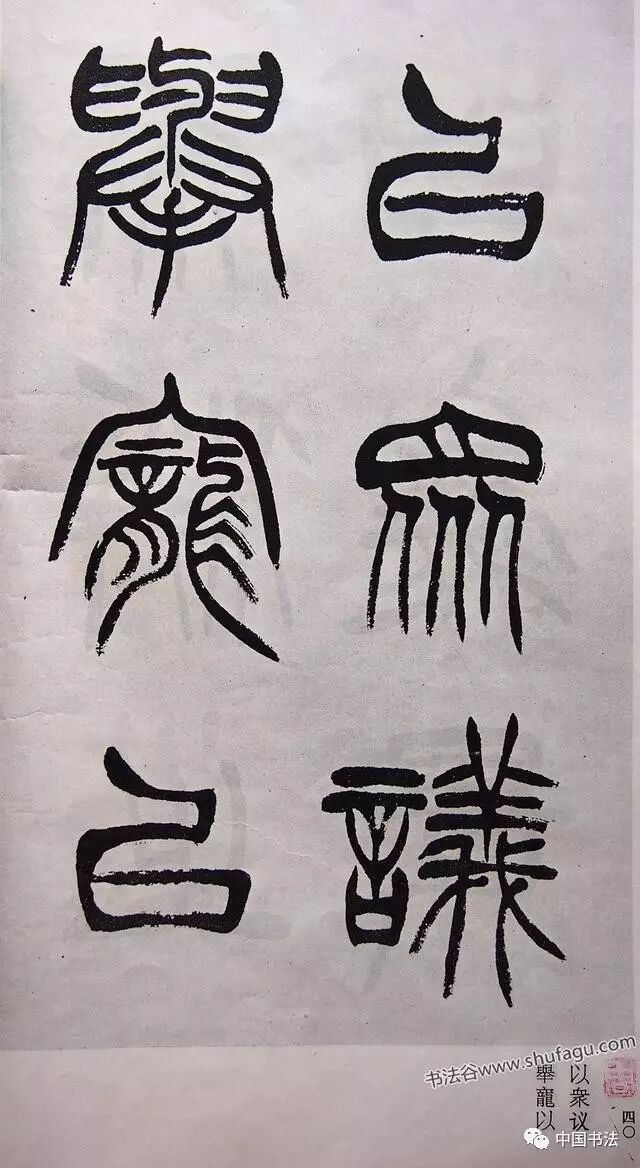 以衆議
舉寵以
书法谷www.shufagu.com
四〇
以衆议
舉龍以
中国书法